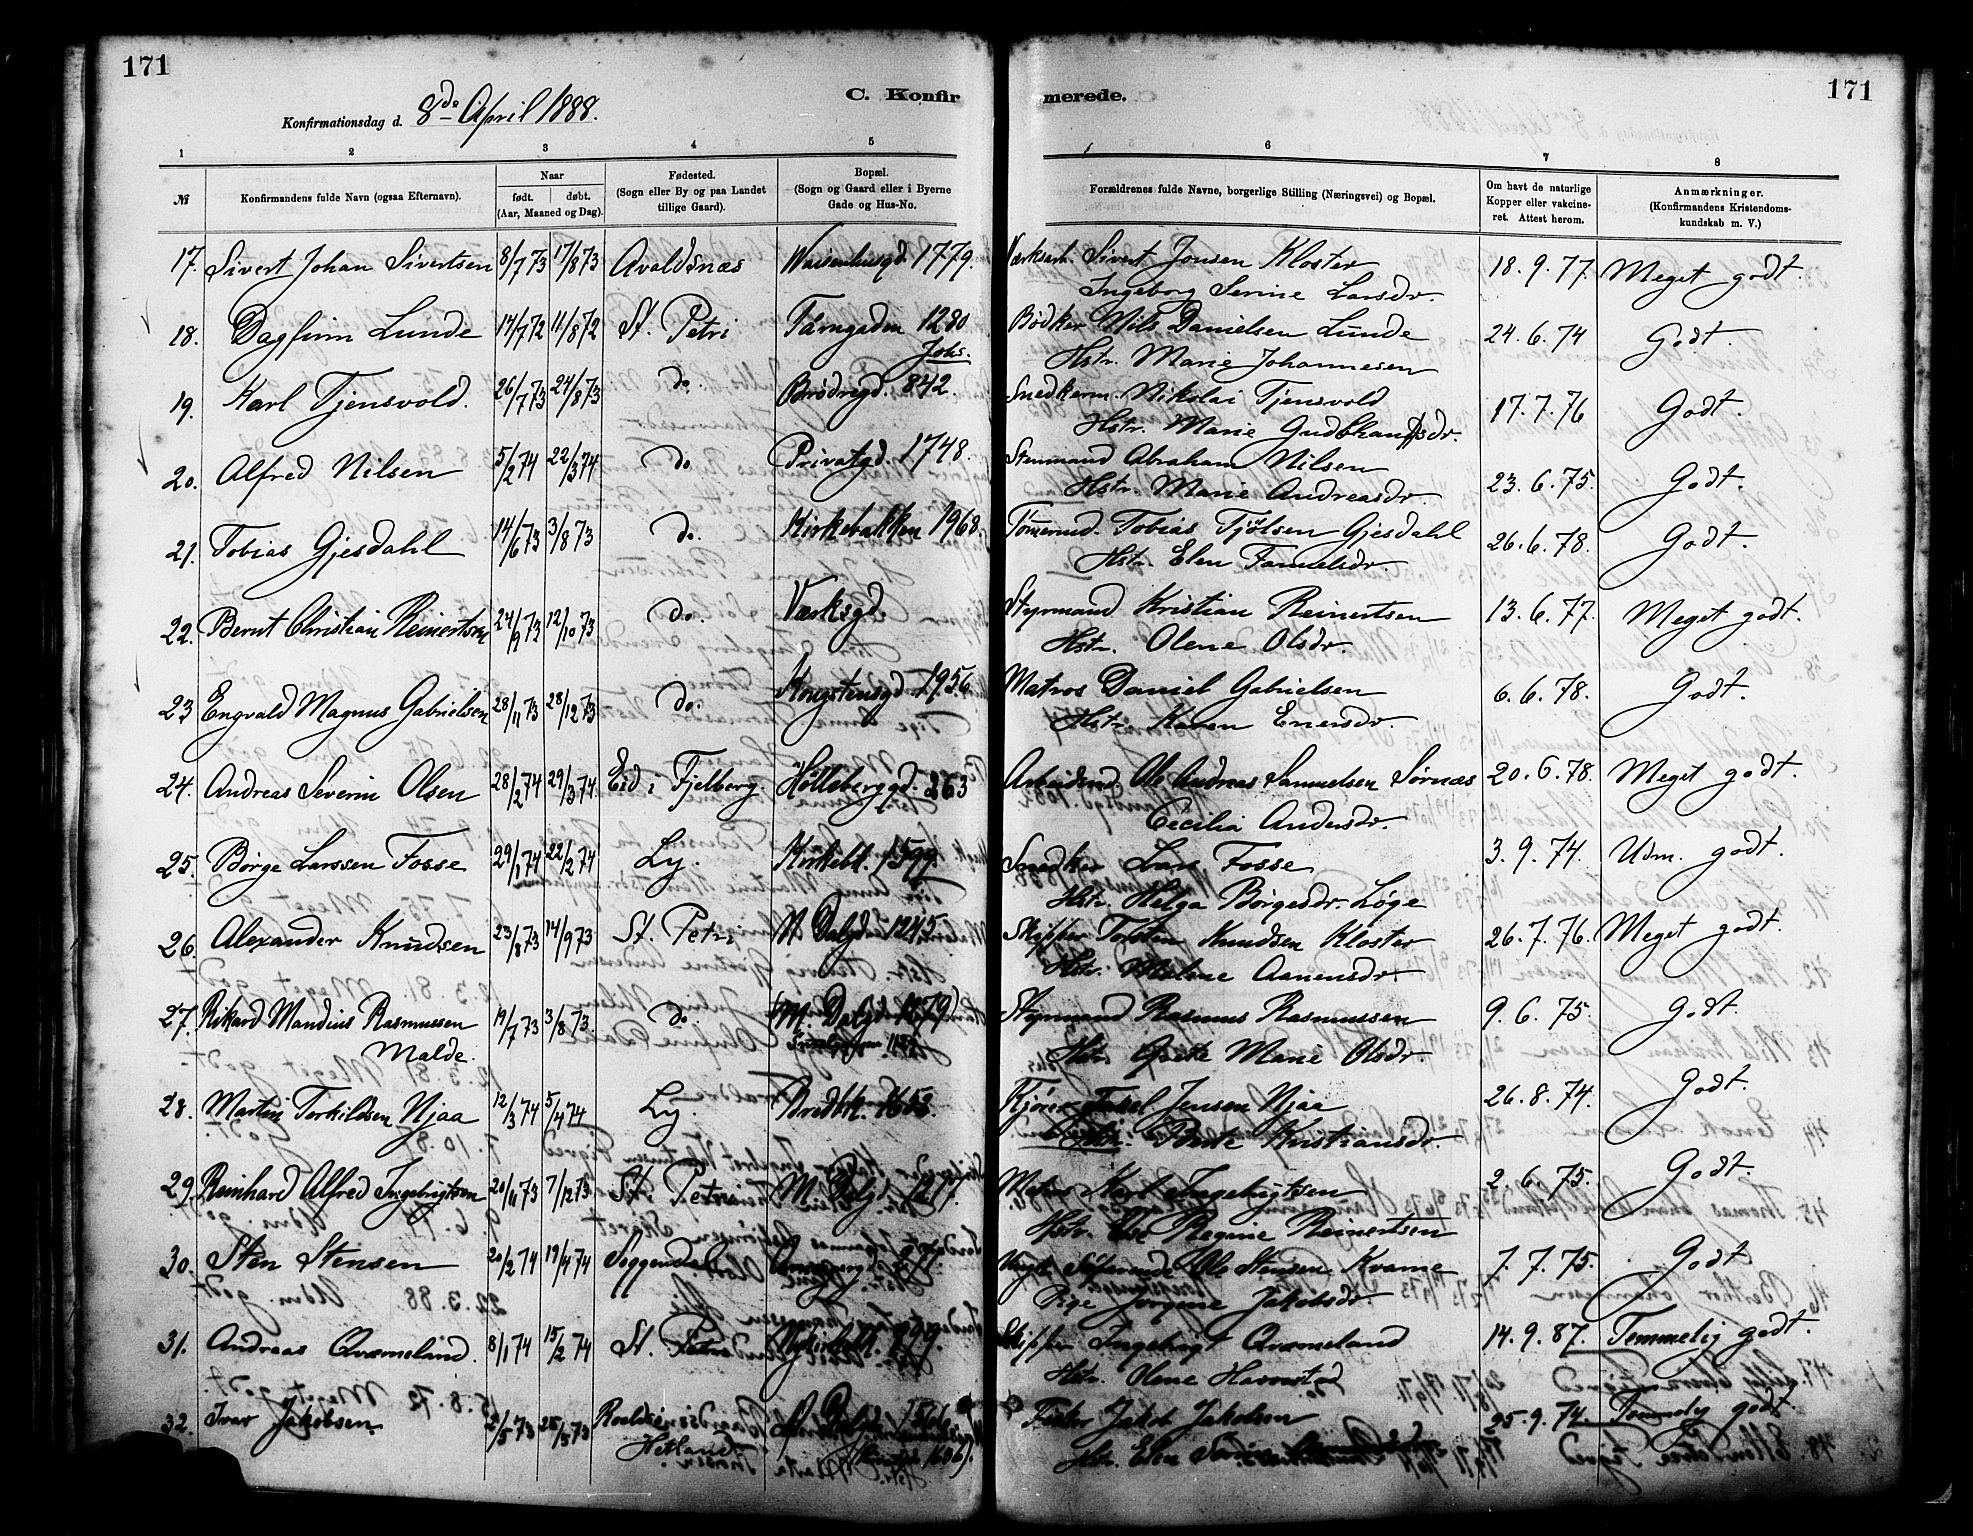 171
171
Konfirmationsdag d. 8de April 1888.
C. Konfirmerede.
1 2 3 4 5 6 7 8
№ Konfirmandens fulde Navn (ogsaa Efternavn). Naar født. døbt. (Aar, Maaned og Dag). Fødested. (Sogn eller By og paa Landet tillige Gaard). Bopæl. (Sogn og Gaard eller i Byerne Gade og Hus-No. Forældrenes fulde Navne, borgerlige Stilling (Næringsvei) og Bopæl. Om havt de naturlige Kopper eller vakcineret. Attest herom. Anmærkninger. (Konfirmandens Kristendomskundskab m. V.)
17. Sivert Johan Sivertsen 8/7 73 17/8 73 Avaldsnæs Waisenhusgd. 1779. Værksarb. Sivert Jonsen Kloster 18. 9. 77. Meget godt.
Ingeborg Serine Larsdr.
18. Dagfinn Lunde 14/7 72 11/8 72 St. Petri Tårngaden 1280 Bødker Nils Danielsen Lunde 24. 6. 74 Godt.
Johs. Hstr. Marie Johannesen
19. Karl Tjensvold. 26/7 73 24/8 73 do. Brødregd. 842. Snedkerm. Nikolai Tjensvold 17. 7. 76 Godt.
Hstr. Marie
20. Alfred Nilsen 5/2 74 22/3 74 do Privatgd. 1748. Stenmand Abraham Nilsen 23. 6. 75. Godt.
Hstr. Marie Andreasdr.
21. Tobias Gjesdahl 14/6 73 3/8 73 do. Kirkebakken 1968. Tømmermd. Tobias Tjølsen Gjesdahl 26. 6. 78. Godt.
Hstr. Elen Samuelsdr.
22. Bernt Christian Reinertsen 24/9 73 12/10 73 do. Værksgd. Styrmand Kristian Reinertsen 13. 6. 77. Meget godt.
Hstr. Olene Olsdr.
23 Engvald Magnus Gabrielsen 28/11 73 28/12 73 do. Kongstensgd. 1956. Matros Daniel Gabrielsen 6. 6. 78. Godt.
Hstr. Karen
24. Andreas Severin Olsen 28/2 74 29/3 74 Eid i Fjelberg. Hölleberggd. 263 Arbeidsmd. Ole Andreas Samuelsen Sørnæs 20. 6. 78. Meget godt.
Cecilia Andersdr.
25. Børge Larssen Fosse 29/1 74 22/2 74 Ly. Kirkebk. 1599. Snedker Lars Fosse 3. 9. 74. Udm. godt.
Hstr. Helga Børgesdr. Løge
26. Alexander Knudsen 23/8 73 14/9 73 St. Petri N. Dalgd. 1245 Skipper Torsten Knudsen Kloster 26. 7. 76. Meget godt.
Hstr. Malene Aanensdr.
27. Rikard Mandius Rasmussen 19/7 73 3/8 73. do. (M. Dalgd. 1279) Styrmand Rasmus Rasmussen 9. 6. 75. Godt.
Malde. Hstr. Grete Marie Olsdr.
28. Martin Torkildsen Njaa 12/3 74 5/4 74 Ly. Bredbk. 1653 Kjører Jensen Njaa 26. 8. 74. Godt.
Hstr. Kristiansdr.
29. Reinhard Alfred Ingebrigtsen 20/11 73 7/12 73 St. Petri M. Dalgd. 1277. Matros Karl Ingebrigtsen 2. 6. 75. Godt.
Hstr. Else Regine Reinertsen
30. Sten Stensen 20/2 74 19/4 74 Soggendal 277. Ugt. Søfarende Ole Stensen Kvame 7. 7. 75. Godt
Pige Jorgine Jakobsdr.
31. Andreas Qvæmeland. 8/1 74 15/2 74 St. Petri 899. Skipper Ingebrigt Qvæmeland 14. 9. 87. Temmelig godt.
Hstr. Olene Havrestad
32. Ivar Jakobsen. 2/5 73 25/5 73 Roaldsø N. Dalgd. 1566. Fisker Jakob Jakobsen 25. 9. 74. Temmelig godt.
Hetland. 1606). Hstr. Elen